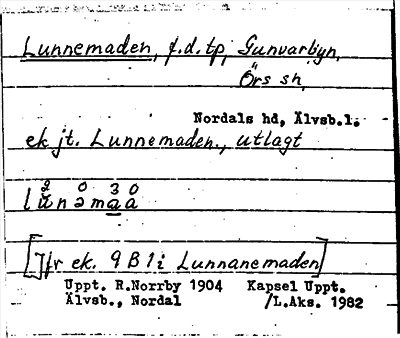 Lunnemaden, f.d. tp, Gunvarbyn,
Örs sn,
Nordals hd, Älvsb.l.
ek jt. Lunnemaden., utlagt
2 0 3 0
lunəmaa
[Jfr ek. 9 B 1i Lunnanemaden]
Uppt. R.Norrby 1904 Kapsel Uppt.
Älvsb., Nordal /L.Aks. 1982